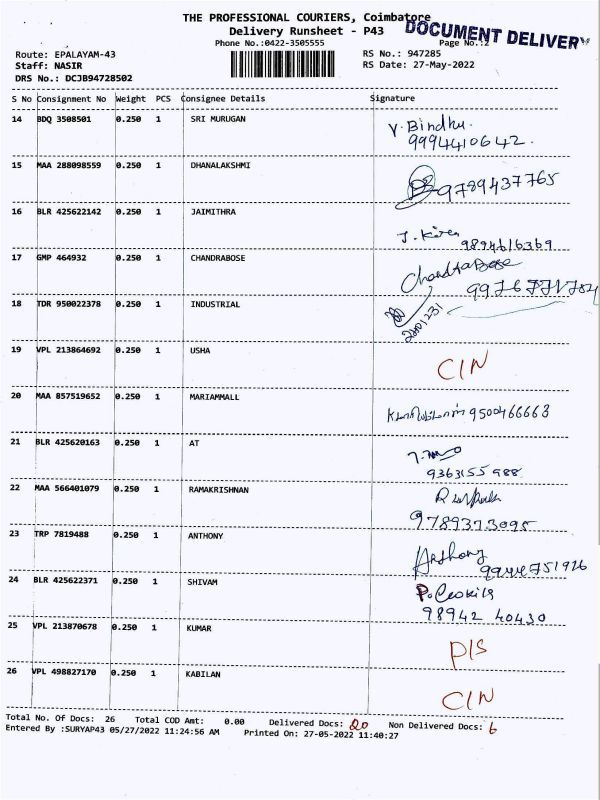 THE PROFESSIONAL COURIERS, Coimbatore
DOCUMENT DELIVERY
Delivery Runsheet - P43
Phone No.:0422-3505555 Page No.:2
Route: EPALAYAM-43 RS No.: 947285
Staff: NASIR RS Date: 27-May-2022
DRS No.: DCJB94728502
S No Consignment No Weight PCS Consignee Details Signature
14 BDQ 3508501 0.250 1 SRI MURUGAN V. Bindhu.
9994410642.
15 MAA 288098559 0.250 1 DHANALAKSHMI 9789437765
16 BLR 425622142 0.250 1 JAIMITHRA
9894616369
17 GMP 464932 0.250 1 CHANDRABOSE ChandraBose
18 TDR 950022378 0.250 1 INDUSTRIAL
2201231
19 VPL 213864692 0.250 1 USHA C/N
20 MAA 857519652 0.250 1 MARIAMMALL 9500466663
21 BLR 425620163 0.250 1 AT
9363155988
22 MAA 566401079 0.250 1 RAMAKRISHNAN
9789373095
23 TRP 7819488 0.250 1 ANTHONY Anthony
9944751926
24 BLR 425622371 0.250 1 SHIVAM
98942 40430
25 VPL 213870678 0.250 1 KUMAR P/S
26 VPL 498827170 0.250 1 KABILAN C/N
Total No. Of Docs: 26 Total COD Amt: 0.00 Delivered Docs: 20 Non Delivered Docs: 6
Entered By :SURYAP43 05/27/2022 11:24:56 AM Printed On: 27-05-2022 11:40:27